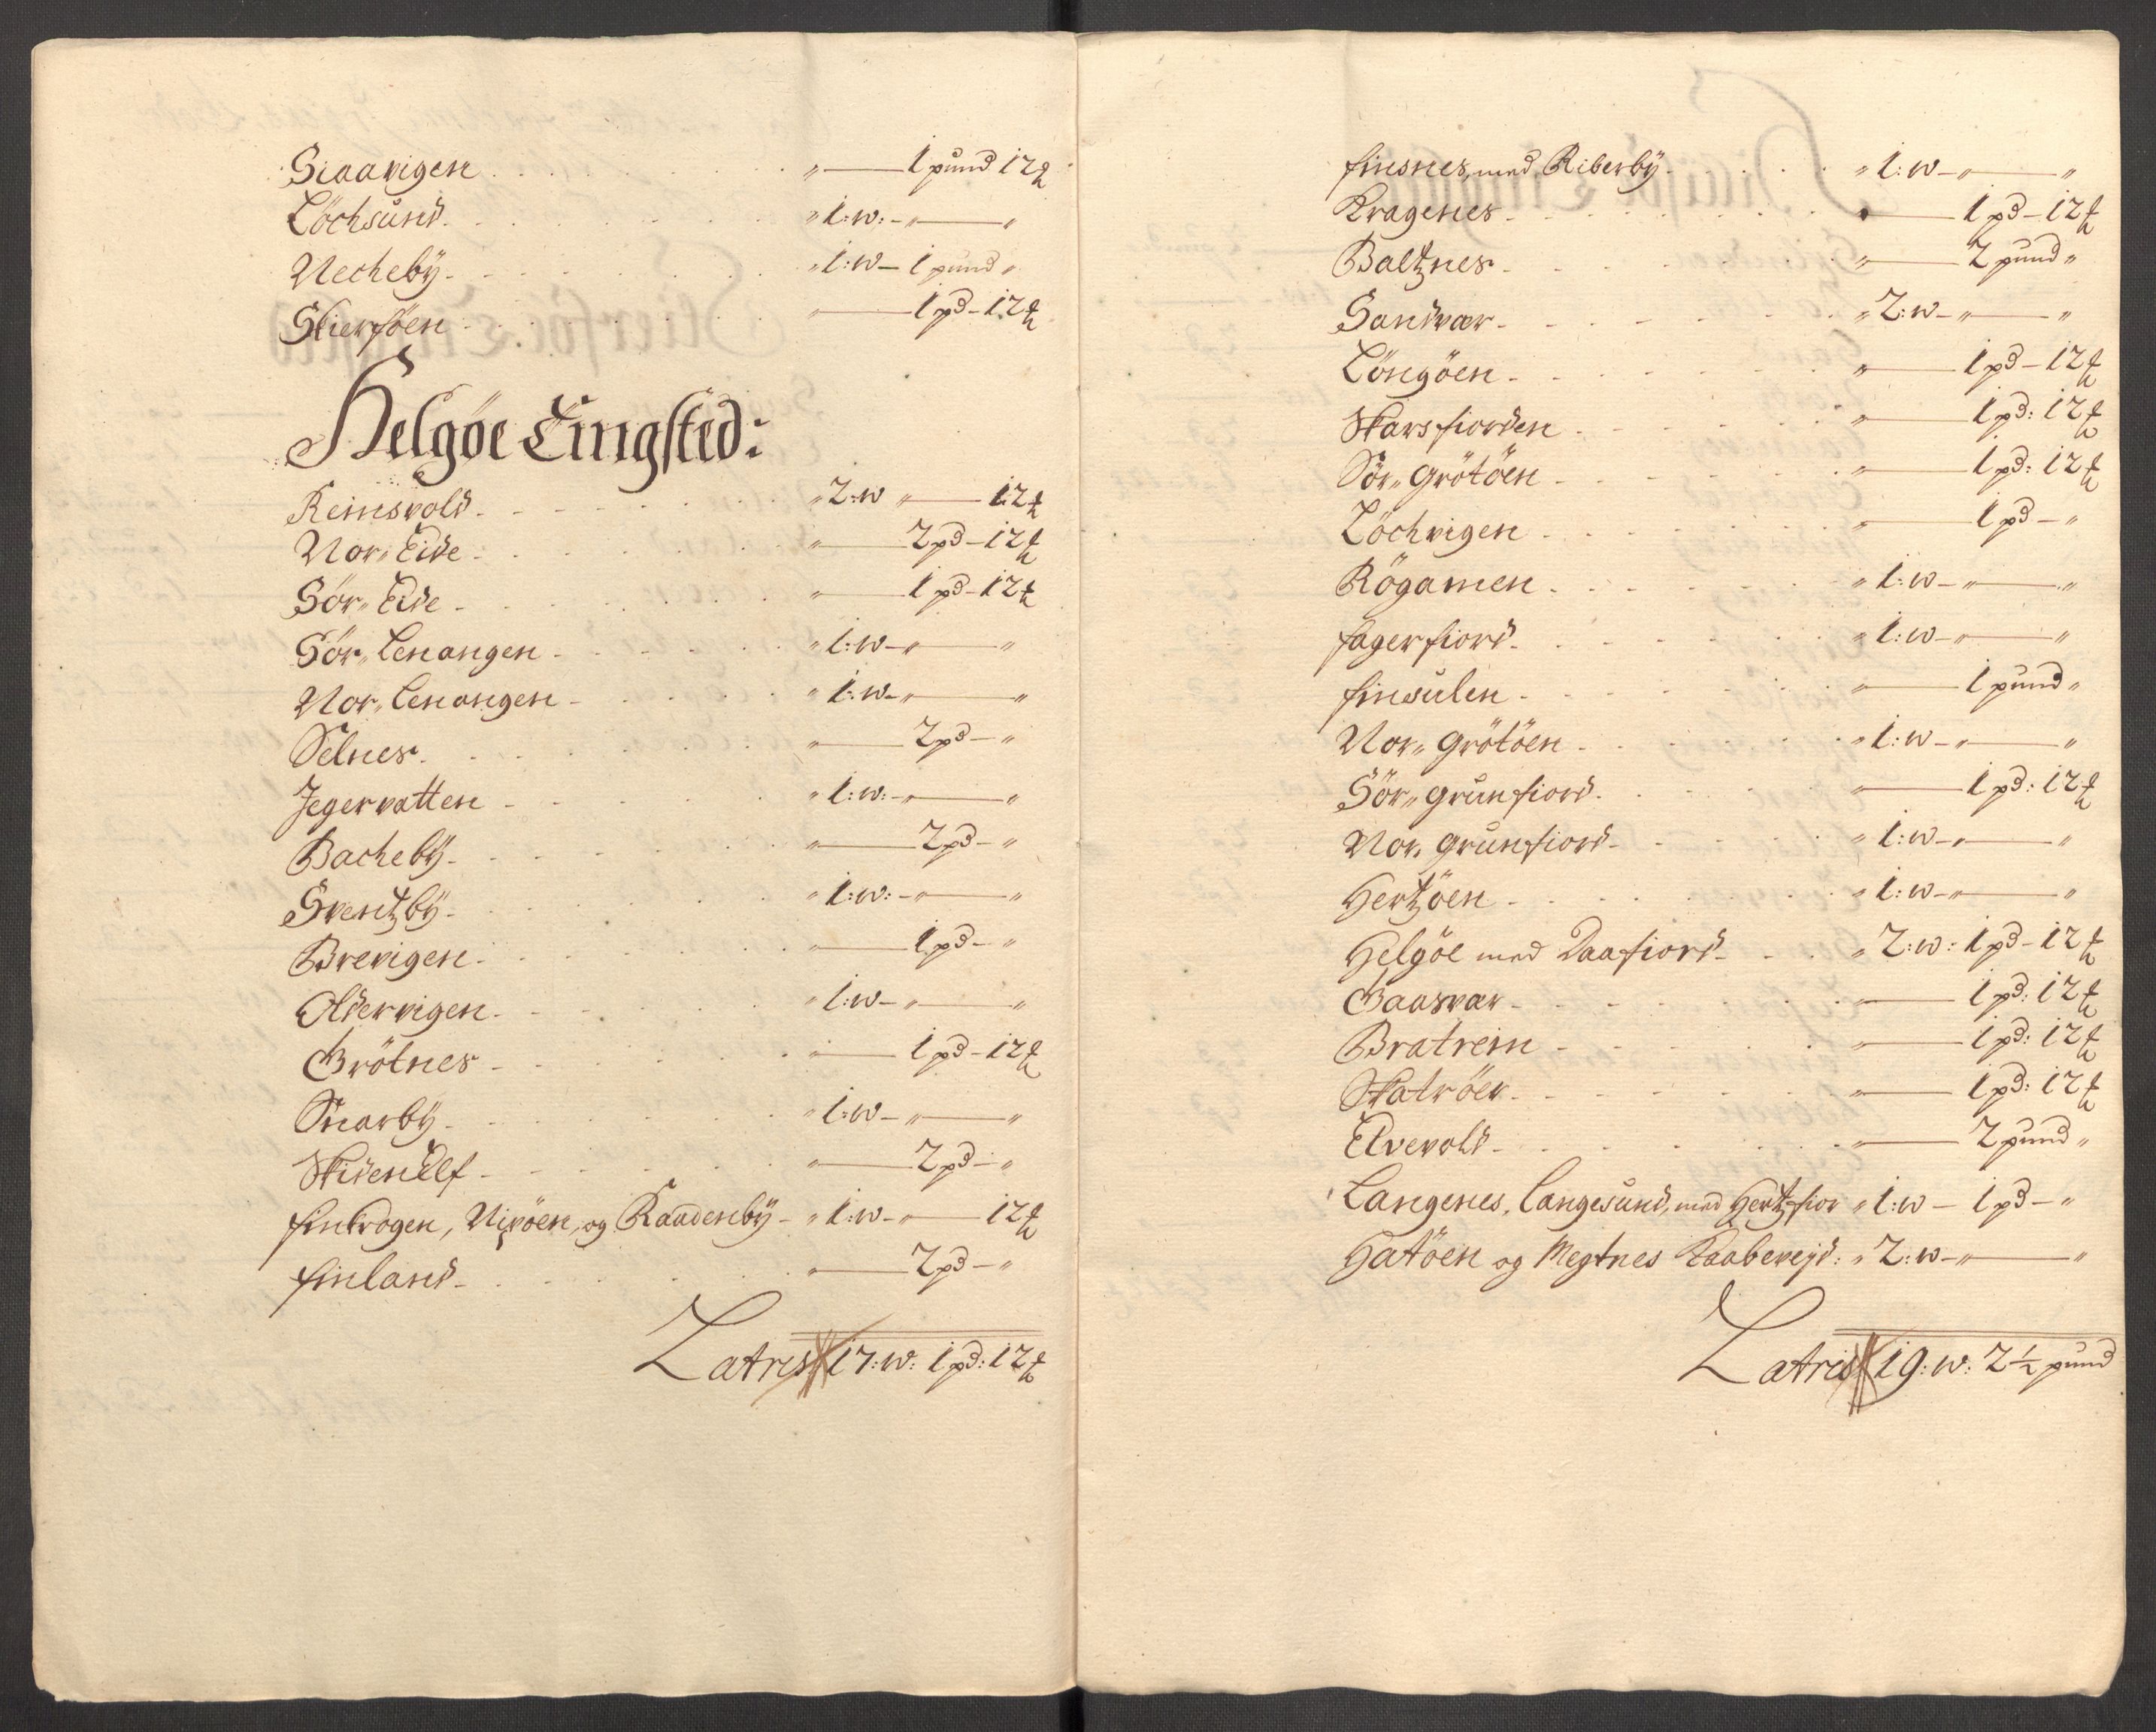 Siaavigen . . . „ — 1 pund 12 ℔
Löchsund . . . „ 1: w: - „ — „
Necheby . . . „ 1: w — 1 pund „
Skierföen . . . „ — 1 pd - 12 ℔
Helgöe Tingsted:
Reinsvold . . . „ 2: w „ — 12 ℔
Nor„ Eide . . . „ — 2 pd - 12 ℔
Sör„ Eide . . . „ — 1 pd - 12 ℔
Sör„ Lenangen . . . „ 1: w - „ — „
Nor„ Lenangen . . . „ 1: w - „ — „
Selnes . . . „ — 2 pd - „
Jegervatten . . . „ 1: w: - „ — „
Bacheby . . . „ — 2 pd - „
Sventzby . . . „ 1: w: - „ — „
Brevigen . . . „ — 1 pd - „
Oldervigen . . . „ 1: w - „ — „
Grötnes . . . „ — 1 pd - 12 ℔
Snarby . . . „ 1: w - „ — „
Skidenelf . . . „ — 2 pd - „
finkrogen, Nipöen, og Raadenby - „ 1: w - „ — 12 ℔
finland . . . „ — 2 pd - „
Latris 17: w: 1 pd: 12 ℔
finsnes, med Riberby . . . „ 1: w - „ — „
Kragenes . . . „ — 1 pd - 12 ℔
Baltznes . . . „ — 2 pund „
Sandvær . . . „ 2: w - „ — „
Löngöen . . . „ — 1 pd - 12 ℔
Skarsfiorden . . . „ — 1 pd: 12 ℔
Sör„ Grötöen . . . „ — 1 pd: 12 ℔
Löchvigen . . . „ — 1 pd - „
Rögamen . . . „ 1: w - „ — „
fagerfiord . . . „ 1: w - „ — „
finsulen . . . „ — 1 pund „
Nor„ Grötöen . . . „ 1: w - „ — „
Sör„ Grunfiord . . . „ — 1 pd: 12 ℔
Nor„ Grunfiord . . . „ 1: w - „ — „
Hertzöen . . . „ 1: w - „ — „
Helgöe med Daafiord . . . „ 2: w: 1 pd - 12 ℔
Gaasvær . . . „ — 1 pd: 12 ℔
Bratrein . . . „ — 1 pd: 12 ℔
Skatröer . . . „ — 1 pd: 12 ℔
Elvevold . . . „ — 2 pund „
Langenes, Langesund, med Hertzfior „ 1: w — 1 pd - „
Hatöen og Megtnes Raabevejd: „ 2: w - „ — „
Latris 19: w: 2 ½ pund